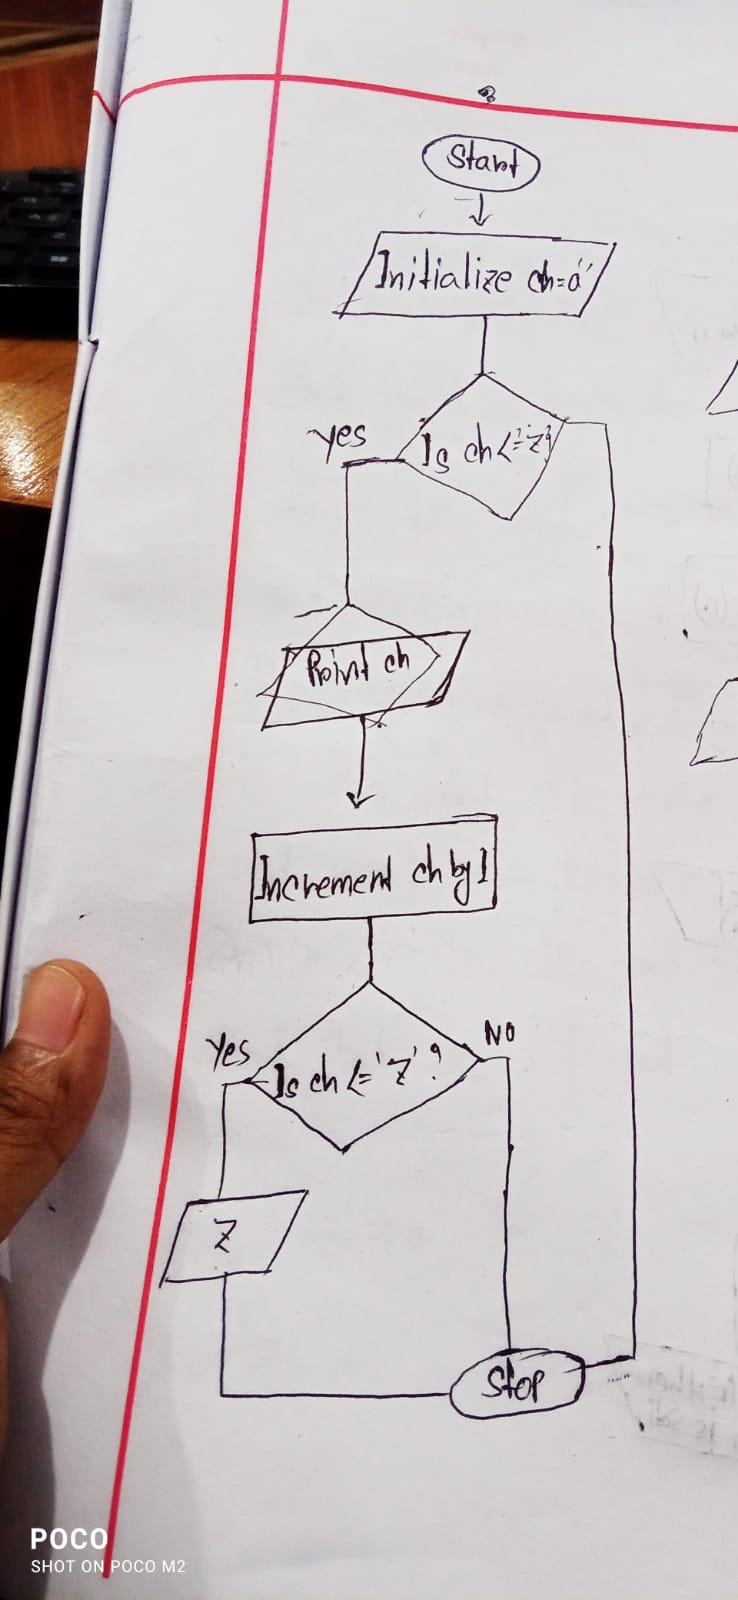 Start
Initialize ch='a'
Is ch<='z'?
Yes
Print ch
Increment ch by 1
Is ch<='z'?
Yes
NO
Z
Stop
POCO
SHOT ON POCO M2